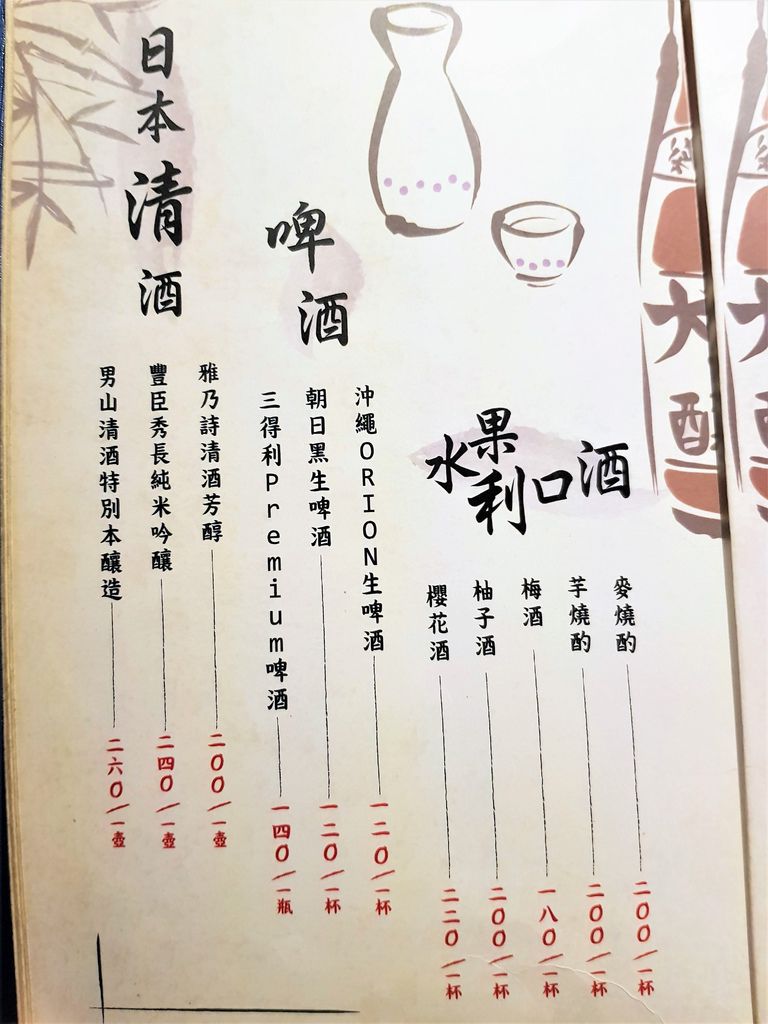 水果利口酒
麥燒酌 二00/一杯
芋燒酌 二00/一杯
梅酒 一八0/一杯
柚子酒 二00/一杯
櫻花酒 二二0/一杯
啤酒
沖繩ORION生啤酒 一二0/一杯
朝日黑生啤酒 一二0/一杯
三得利Premium啤酒 一四0/一瓶
日本清酒
雅乃詩清酒芳醇 二00/一壺
豐臣秀長純米吟釀 二四0/一壺
男山清酒特別本釀造 二六0/一壺
大